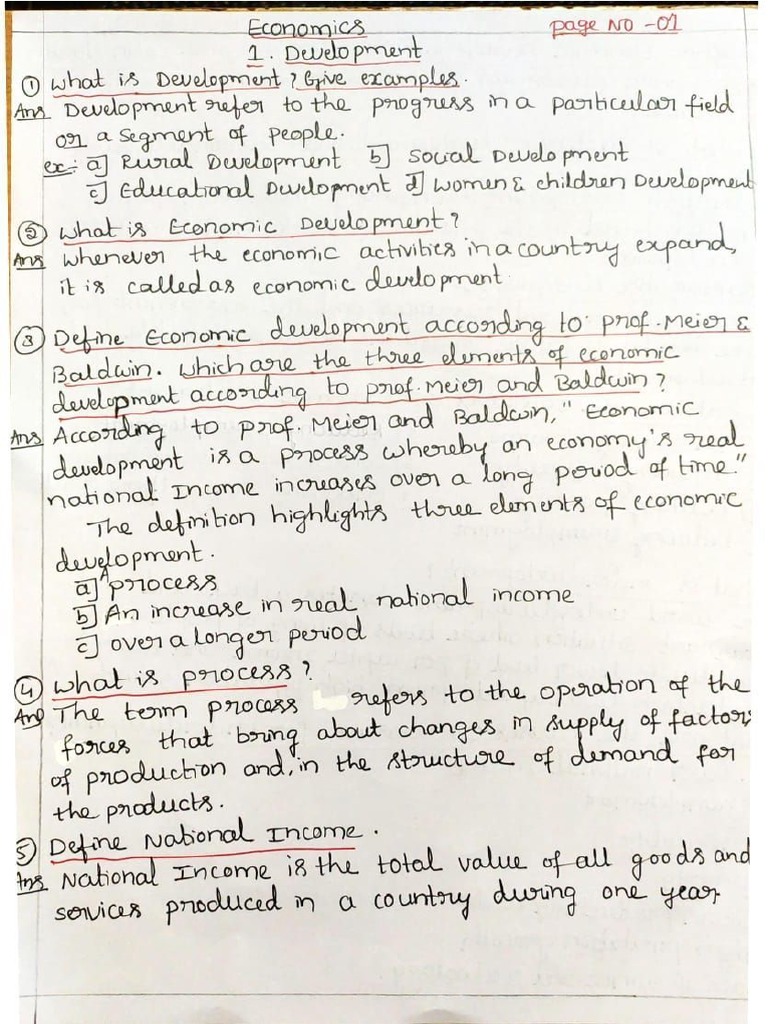 Economics
page NO -01
1. Development
① What is Development? Give examples.
Ans Development refer to the progress in a particular field
or a segment of people.
ex:- a] Rural Development b] Social Development
c] Educational Development d] Women & children Development
② What is Economic Development?
Ans Whenever the economic activities in a country expand,
it is called as economic development.
③ Define Economic development according to prof. Meier &
Baldwin. Which are the three elements of economic
development according to prof. Meier and Baldwin?
Ans According to prof. Meier and Baldwin, "Economic
development is a process whereby an economy's real
national Income increases over a long period of time."
The definition highlights three elements of economic
development.
a] A process
b] An increase in real national income
c] over a longer period
④ What is process?
Ans The term process refers to the operation of the
forces that bring about changes in supply of factors
of production and, in the structure of demand for
the products.
⑤ Define National Income.
Ans National Income is the total value of all goods and
services produced in a country during one year